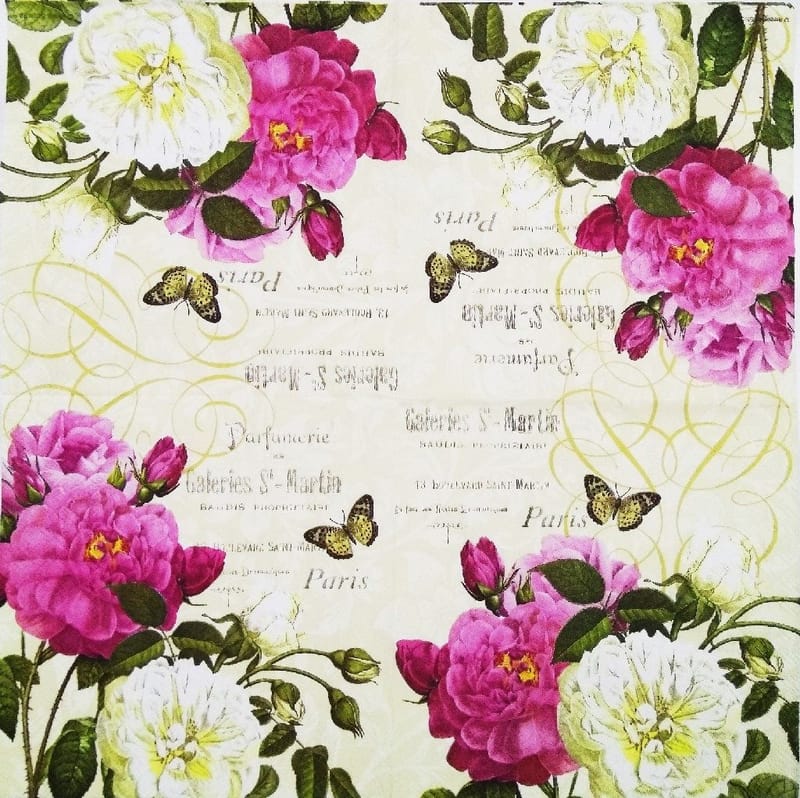 Paris
13, BOULEVARD SAINT-MARTIN
BAUDIS PROPRIETAIRE
Galeries St-Martin
Paris
BOULEVARD SAINT-MARTIN
BAUDIS PROPRIETAIRE
Galeries St-Martin
Parfumerie
Parfumerie
Galeries St-Martin
BAUDIS PROPRIETAIRE
BOULEVARD SAINT-MARTIN
Paris
Galeries St-Martin
BAUDIS PROPRIETAIRE
13, BOULEVARD SAINT-MARTIN
Paris